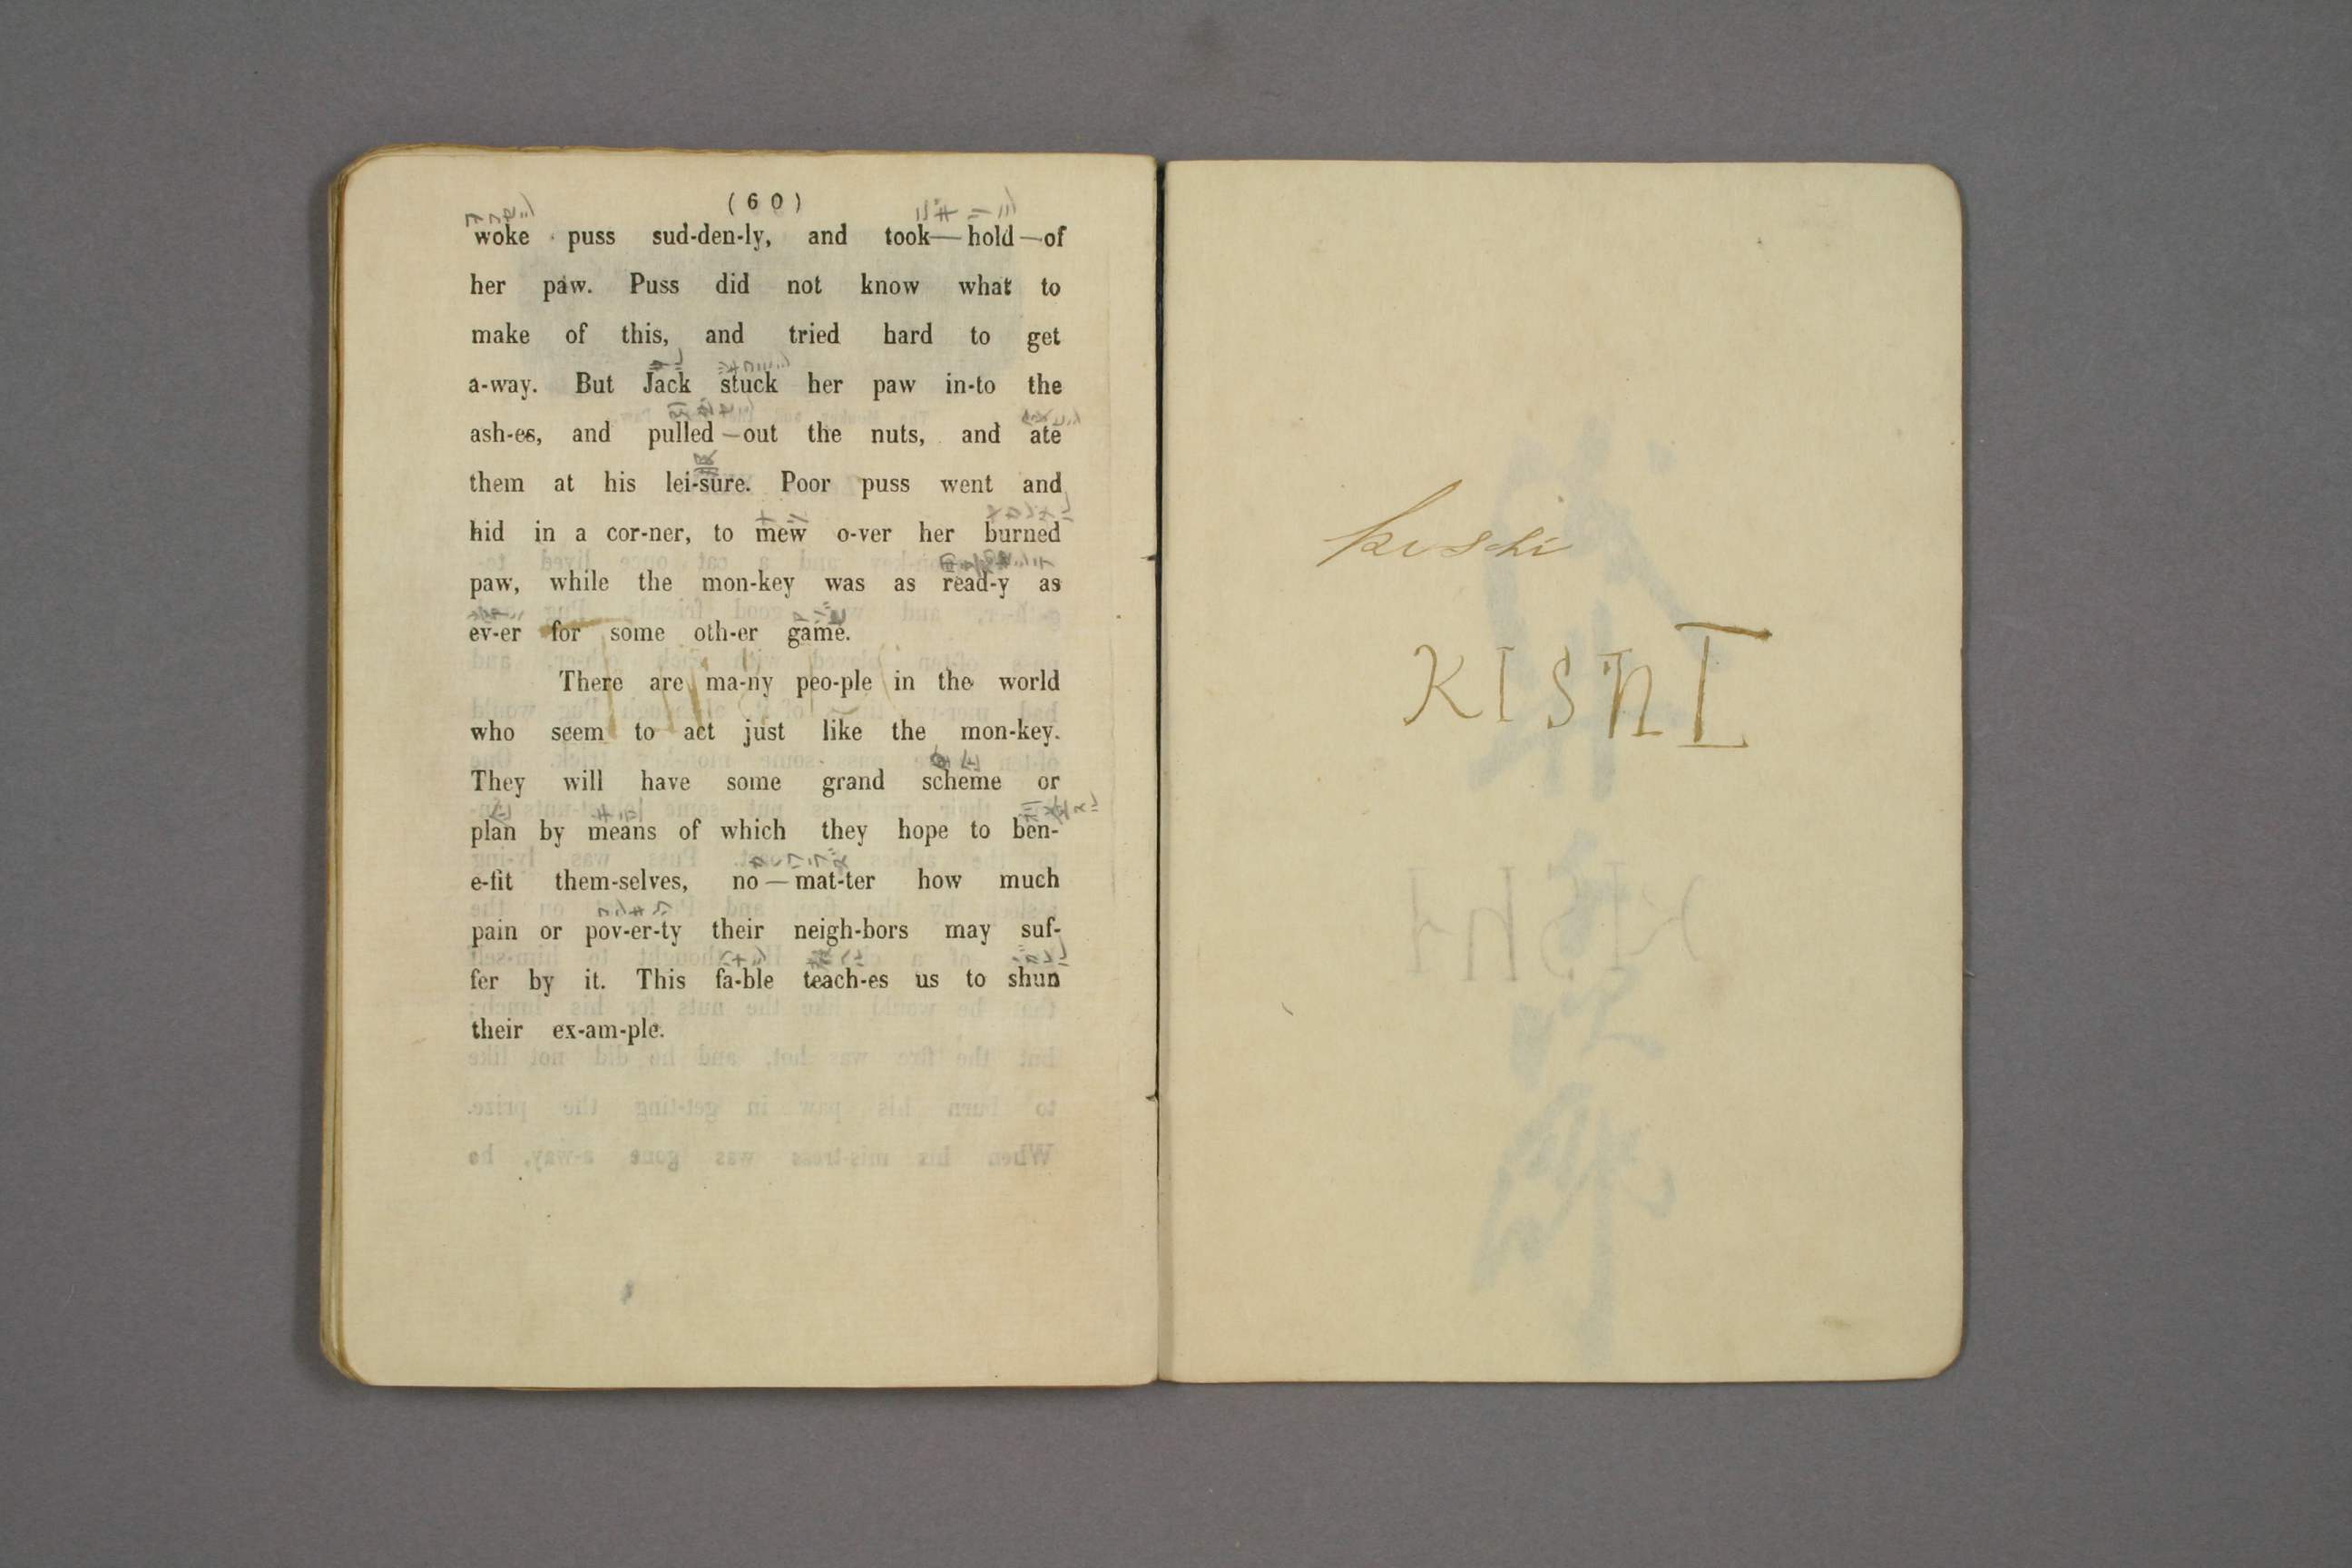 (60)
woke puss sud-den-ly, and took—hold—of
her paw. Puss did not know what to
make of this, and tried hard to get
a-way. But Jack stuck her paw in-to the
ash-es, and pulled—out the nuts, and ate
them at his lei-sure. Poor puss went and
hid in a cor-ner, to mew o-ver her burned
paw, while the mon-key was as read-y as
ev-er for some oth-er game.
There are ma-ny peo-ple in the world
who seem to act just like the mon-key.
They will have some grand scheme or
plan by means of which they hope to ben-
e-fit them-selves, no—mat-ter how much
pain or pov-er-ty their neigh-bors may suf-
fer by it. This fa-ble teach-es us to shun
their ex-am-ple.
KISHI